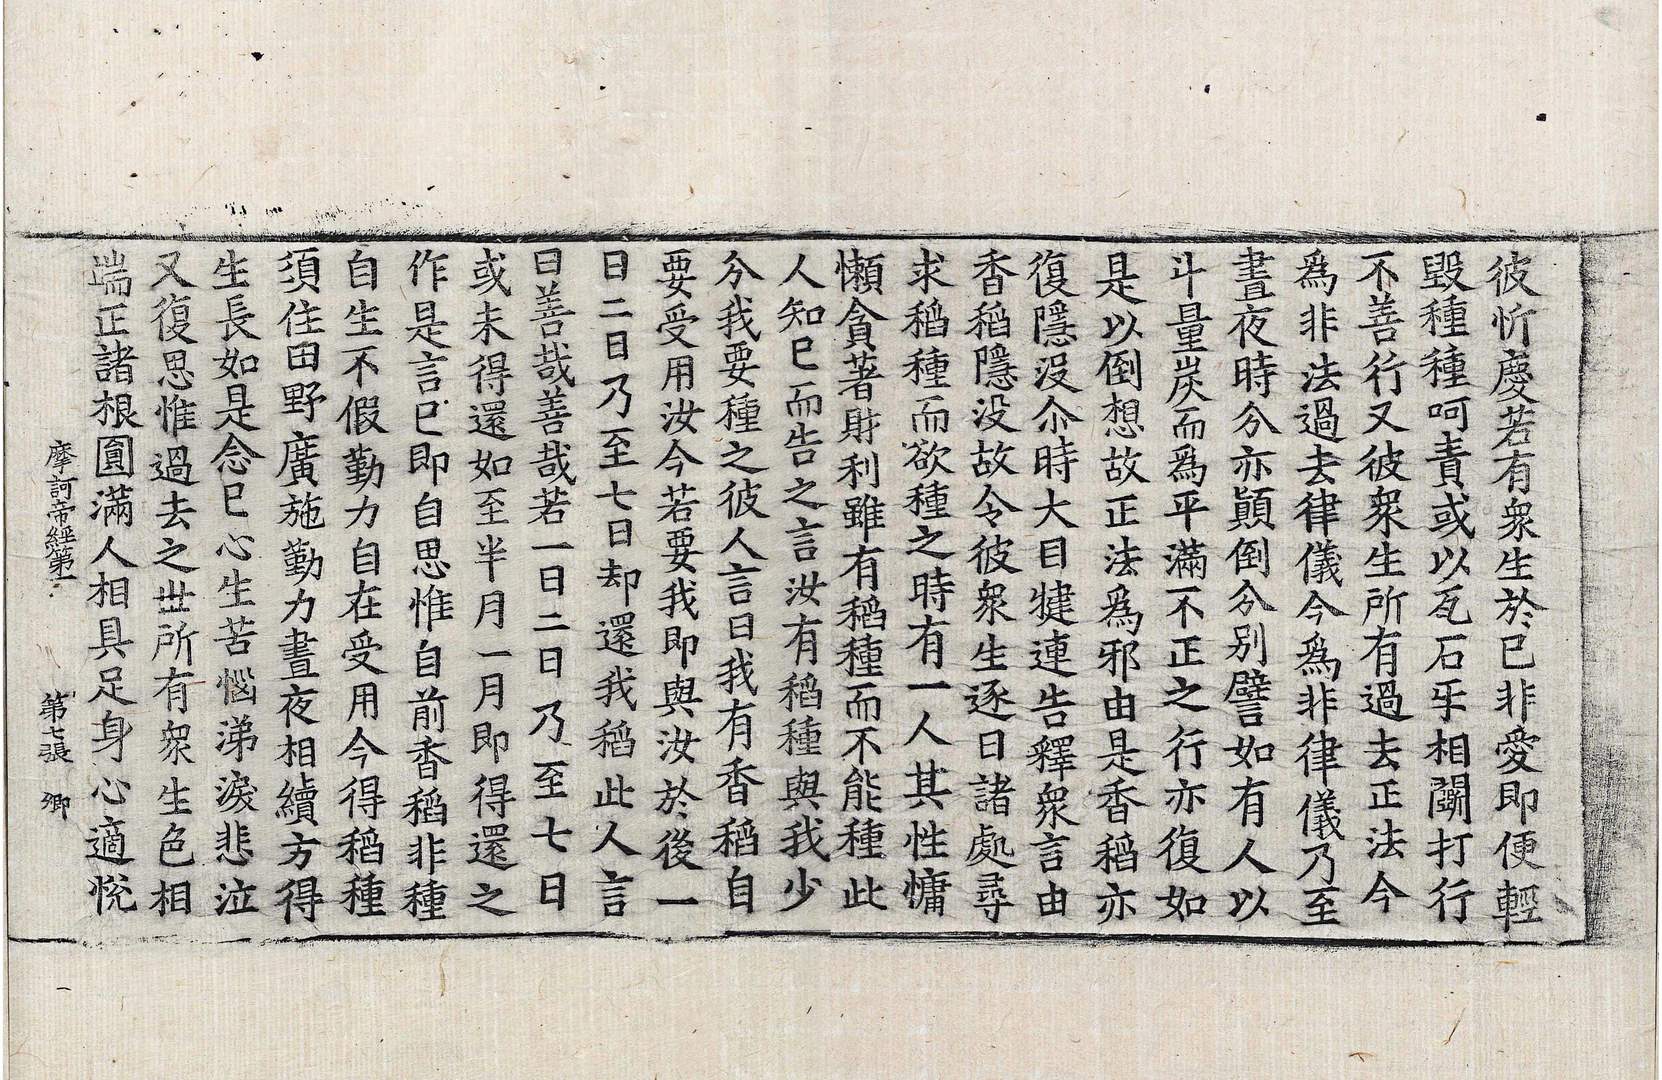 彼忻慶若有衆生於已非愛即便輕
毀種種呵責或以瓦石手相鬪打行
不善行又彼衆生所有過去正法今
爲非法過去律儀今爲非律儀乃至
晝夜時分亦顚倒分別譬如有人以
斗量炭而爲平滿不正之行亦復如
是以倒想故正法爲邪由是香稻亦
復隱没尒時大目犍連告釋衆言由
香稻隱没故令彼衆生逐日諸處尋
求稻種而欲種之時有一人其性慵
懶貪著財利雖有稻種而不能種此
人知已而告之言汝有稻種與我少
分我要種之彼人言曰我有香稻自
要受用汝今若要我即與汝於後一
日二日乃至七日却還我稻此人言
曰善哉善哉若一日二日乃至七日
或未得還如至半月一月即得還之
作是言已即自思惟自前香稻非種
自生不假勤力自在受用今得稻種
須住田野廣施勤力晝夜相續方得
生長如是念已心生苦惱涕淚悲泣
又復思惟過去之世所有衆生色相
端正諸根圓滿人相具足身心適悅
摩訶帝經第一 第七張 卿